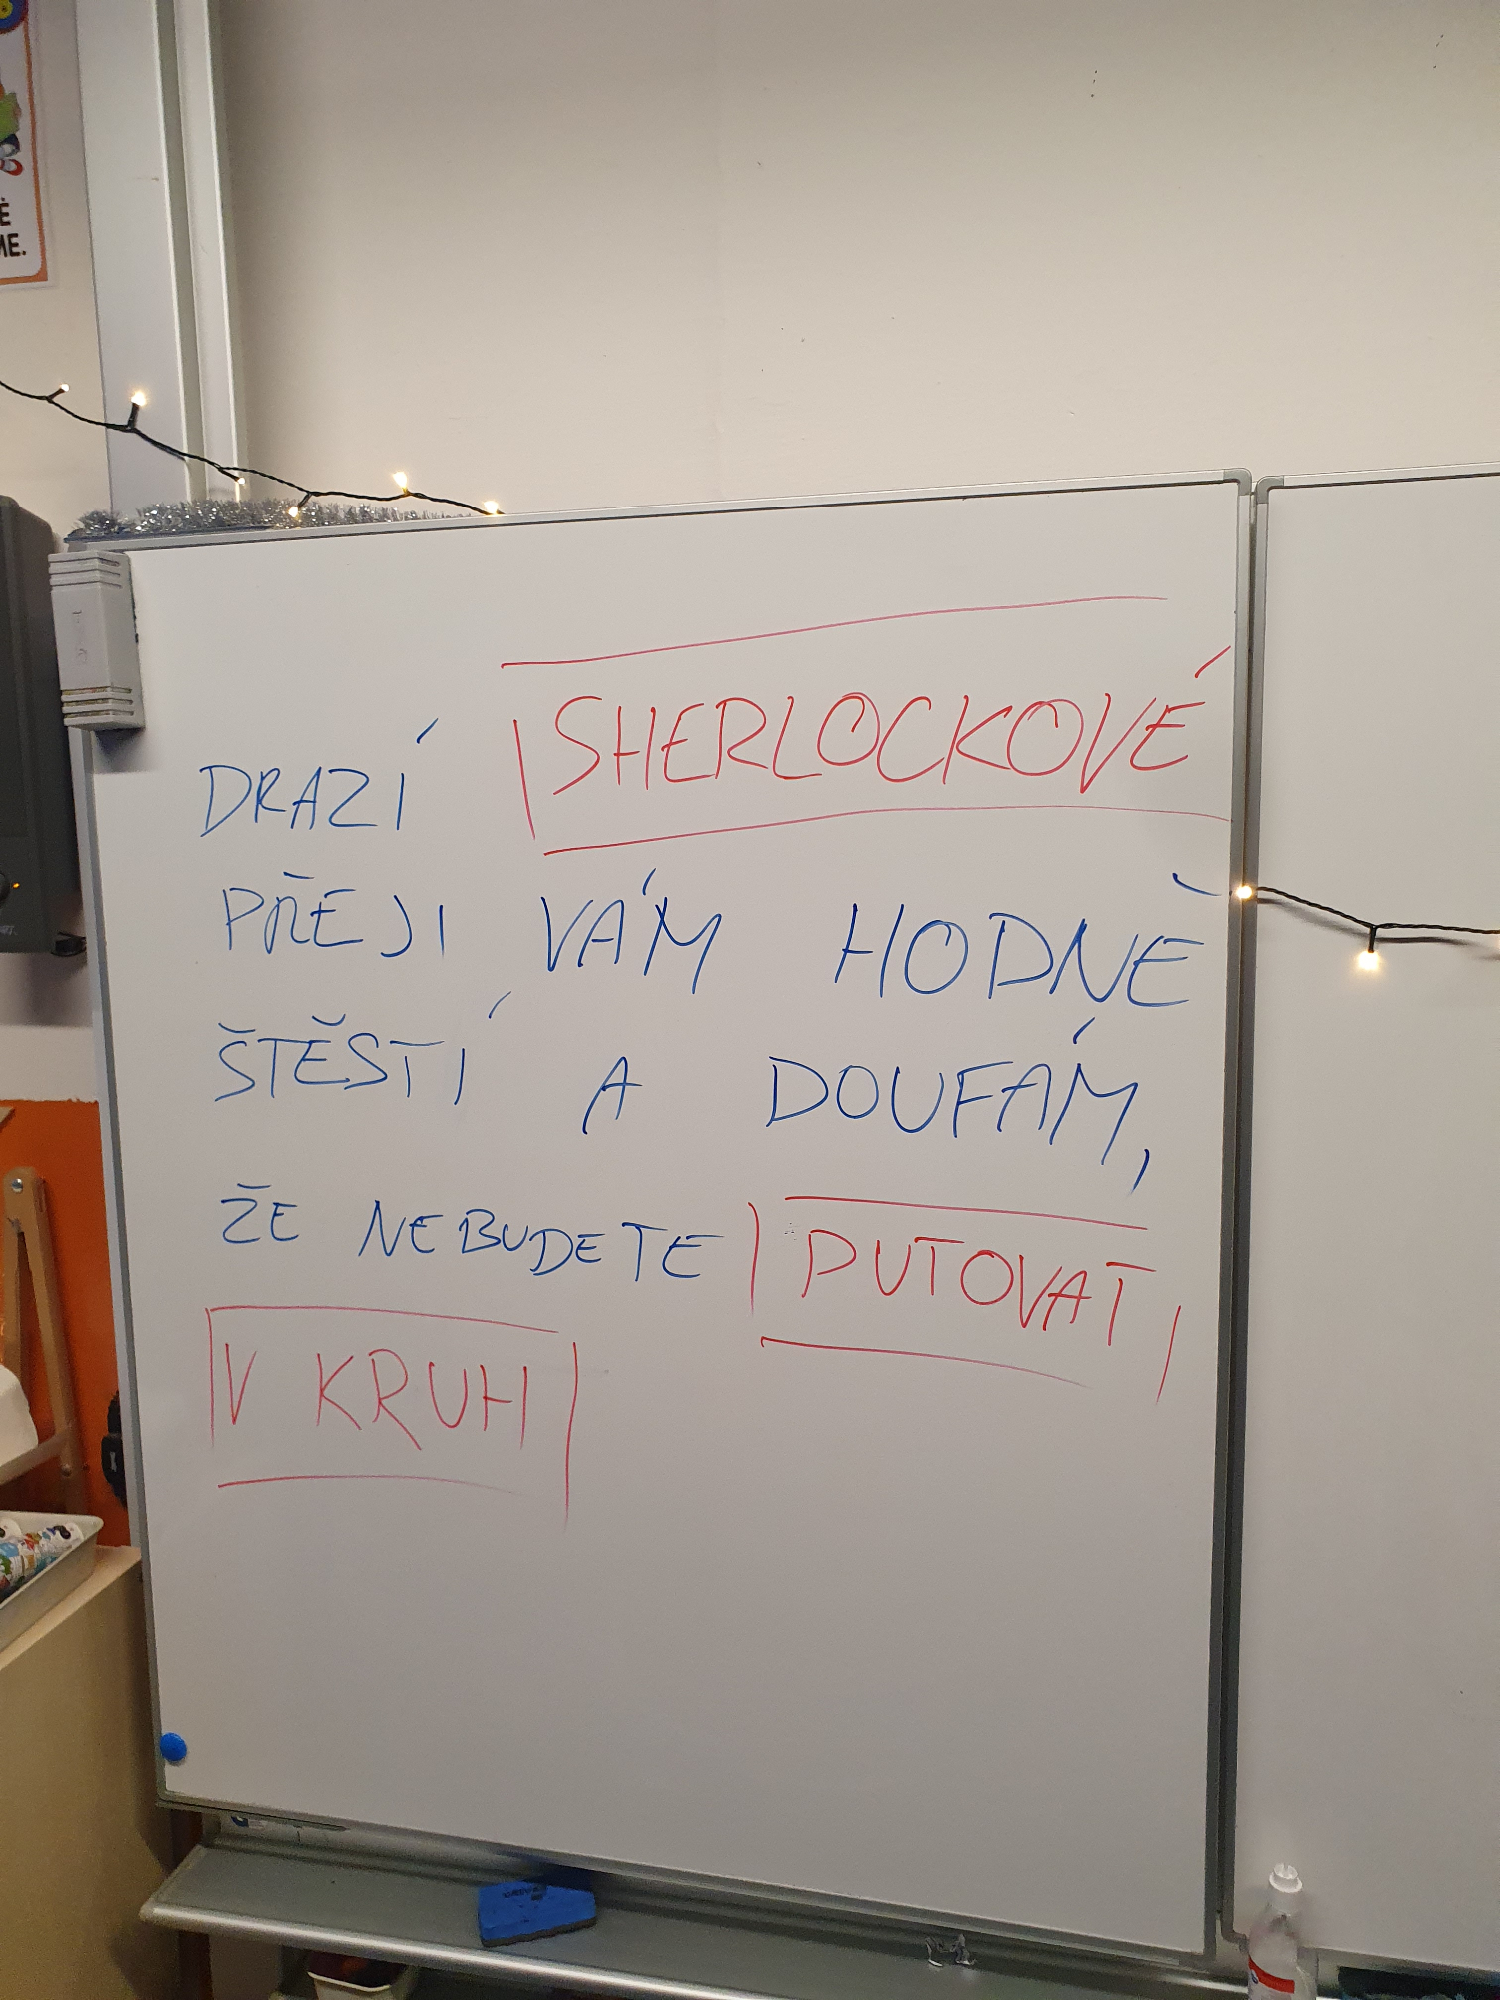 Ě
ME.
DRAZÍ SHERLOCKOVÉ
PŘEJI VÁM HODNĚ
ŠTĚSTÍ A DOUFÁM,
ŽE NEBUDETE PUTOVAT
V KRUH